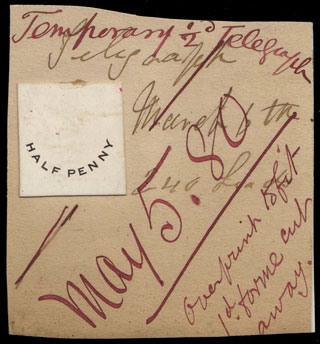 Temporary ½d Telegraph
Telegraph
March 6 the
HALF PENNY
240
May 5. 80
Overprint to fit
1d forme cut
away.